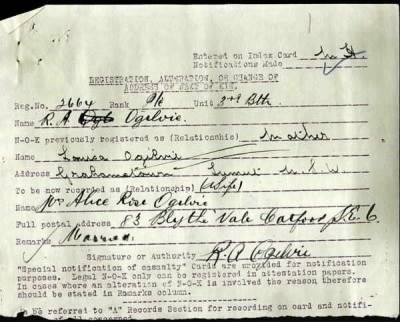 Entered on Index Card
Notifications Made
REGISTRATION, ALTERATION, OR CHANGE OF
ADDRESS OF NEXT OF KIN.
Reg.No. 2664 Rank Pte Unit 3rd Bttn
Name R.A Ogilvie.
N-O-K previously registered as (Relationship) Mother
Name Louisa Ogilvie
Address Grahamstown N.S.W
To be now recorded as (Relationship) (Wife)
Name Mrs Alice Rose Ogilvie
Full postal address 83 Blythe Vale Catford S.E. 6.
Remarks Married.
Signature or authority R.A Ogilvie
"Special notification of casualty" Cards are provided for notification
purposes. Legal N-O-K only to be registered in attestation papers.
In cases where an alteration of N-O-K is involved the reason therefore
should be stated in Remarks column.
To be referred to "A" Records Section for recording on card and notifi-